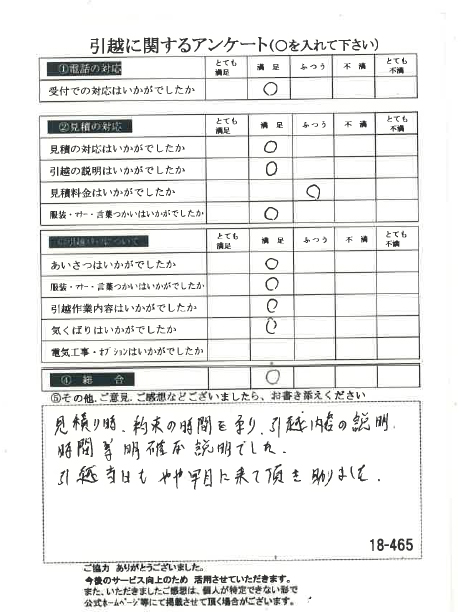 引越に関するアンケート(○を入れて下さい)
①電話の対応 とても満足 満足 ふつう 不満 とても不満
受付での対応はいかがでしたか ○
②見積の対応 とても満足 満足 ふつう 不満 とても不満
見積の対応はいかがでしたか ○
引越の説明はいかがでしたか ○
見積料金はいかがでしたか ○
服装・マナー・言葉つかいはいかがでしたか ○
とても満足 満足 ふつう 不満 とても不満
あいさつはいかがでしたか ○
服装・マナー・言葉つかいはいかがでしたか ○
引越作業内容はいかがでしたか ○
気くばりはいかがでしたか ○
電気工事・オプションはいかがでしたか
④総合 ○
⑤その他、ご意見、ご感想などございましたら、お書き添えください
見積り時、約束の時間を守り、引越内容の説明、
時間等明確な説明でした。
引越当日もやや早目に来て頂き助りました。
18-465
ご協力 ありがとうございました。
今後のサービス向上のため 活用させていただきます。
また、いただきましたご感想は、個人が特定できない形で
公式ホームページ等にて掲載させて頂く場合がございます。